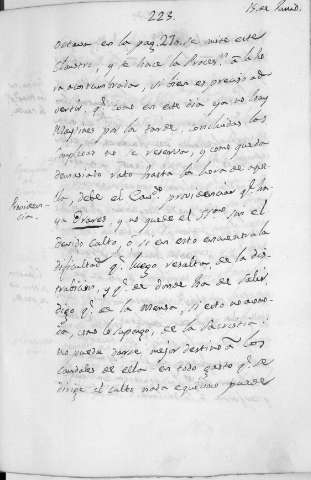 223.
octava en la pag. 270. se viste este
Claustro, y se hace la Proces.n à la ho
ra acostumbrada, si bien es preciso ad
vertir, q.e como en este dia ya no hay
Maytines por la tarde, concluidas las
Completas no se reserva, y como queda
demasiado rato hasta la hora de aque
lla, debe el Cav.do providenciar q.e ha
Providen-
cia.
ya Orares, y no quede el SSmo. sin el
devido culto, ò si en esto encuentra la
dificultad q.e luego resalta, de la dis
tribucion, y q.e de donde ha de salir,
digo q.e de la Mensa, si esto no acomo
da, como lo supongo, de la Sacristia:
no puede darse mejor destino à los
caudales de ella en todo gasto q.e se
dirige al culto nada equivoco puede